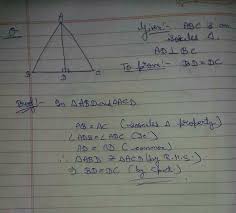 Q
Given:- ABC is an
isosceles Δ.
AD ⊥ BC
To prove:- BD = DC
A
B
D
C
Proof:- In ΔABD and ΔACD
AB = AC (isosceles Δ property)
∠ADB = ∠ADC
AD = AD (common)
∴ ΔABD ≅ ΔACD (by R.H.S.)
⇒ BD = DC (by cpct.)